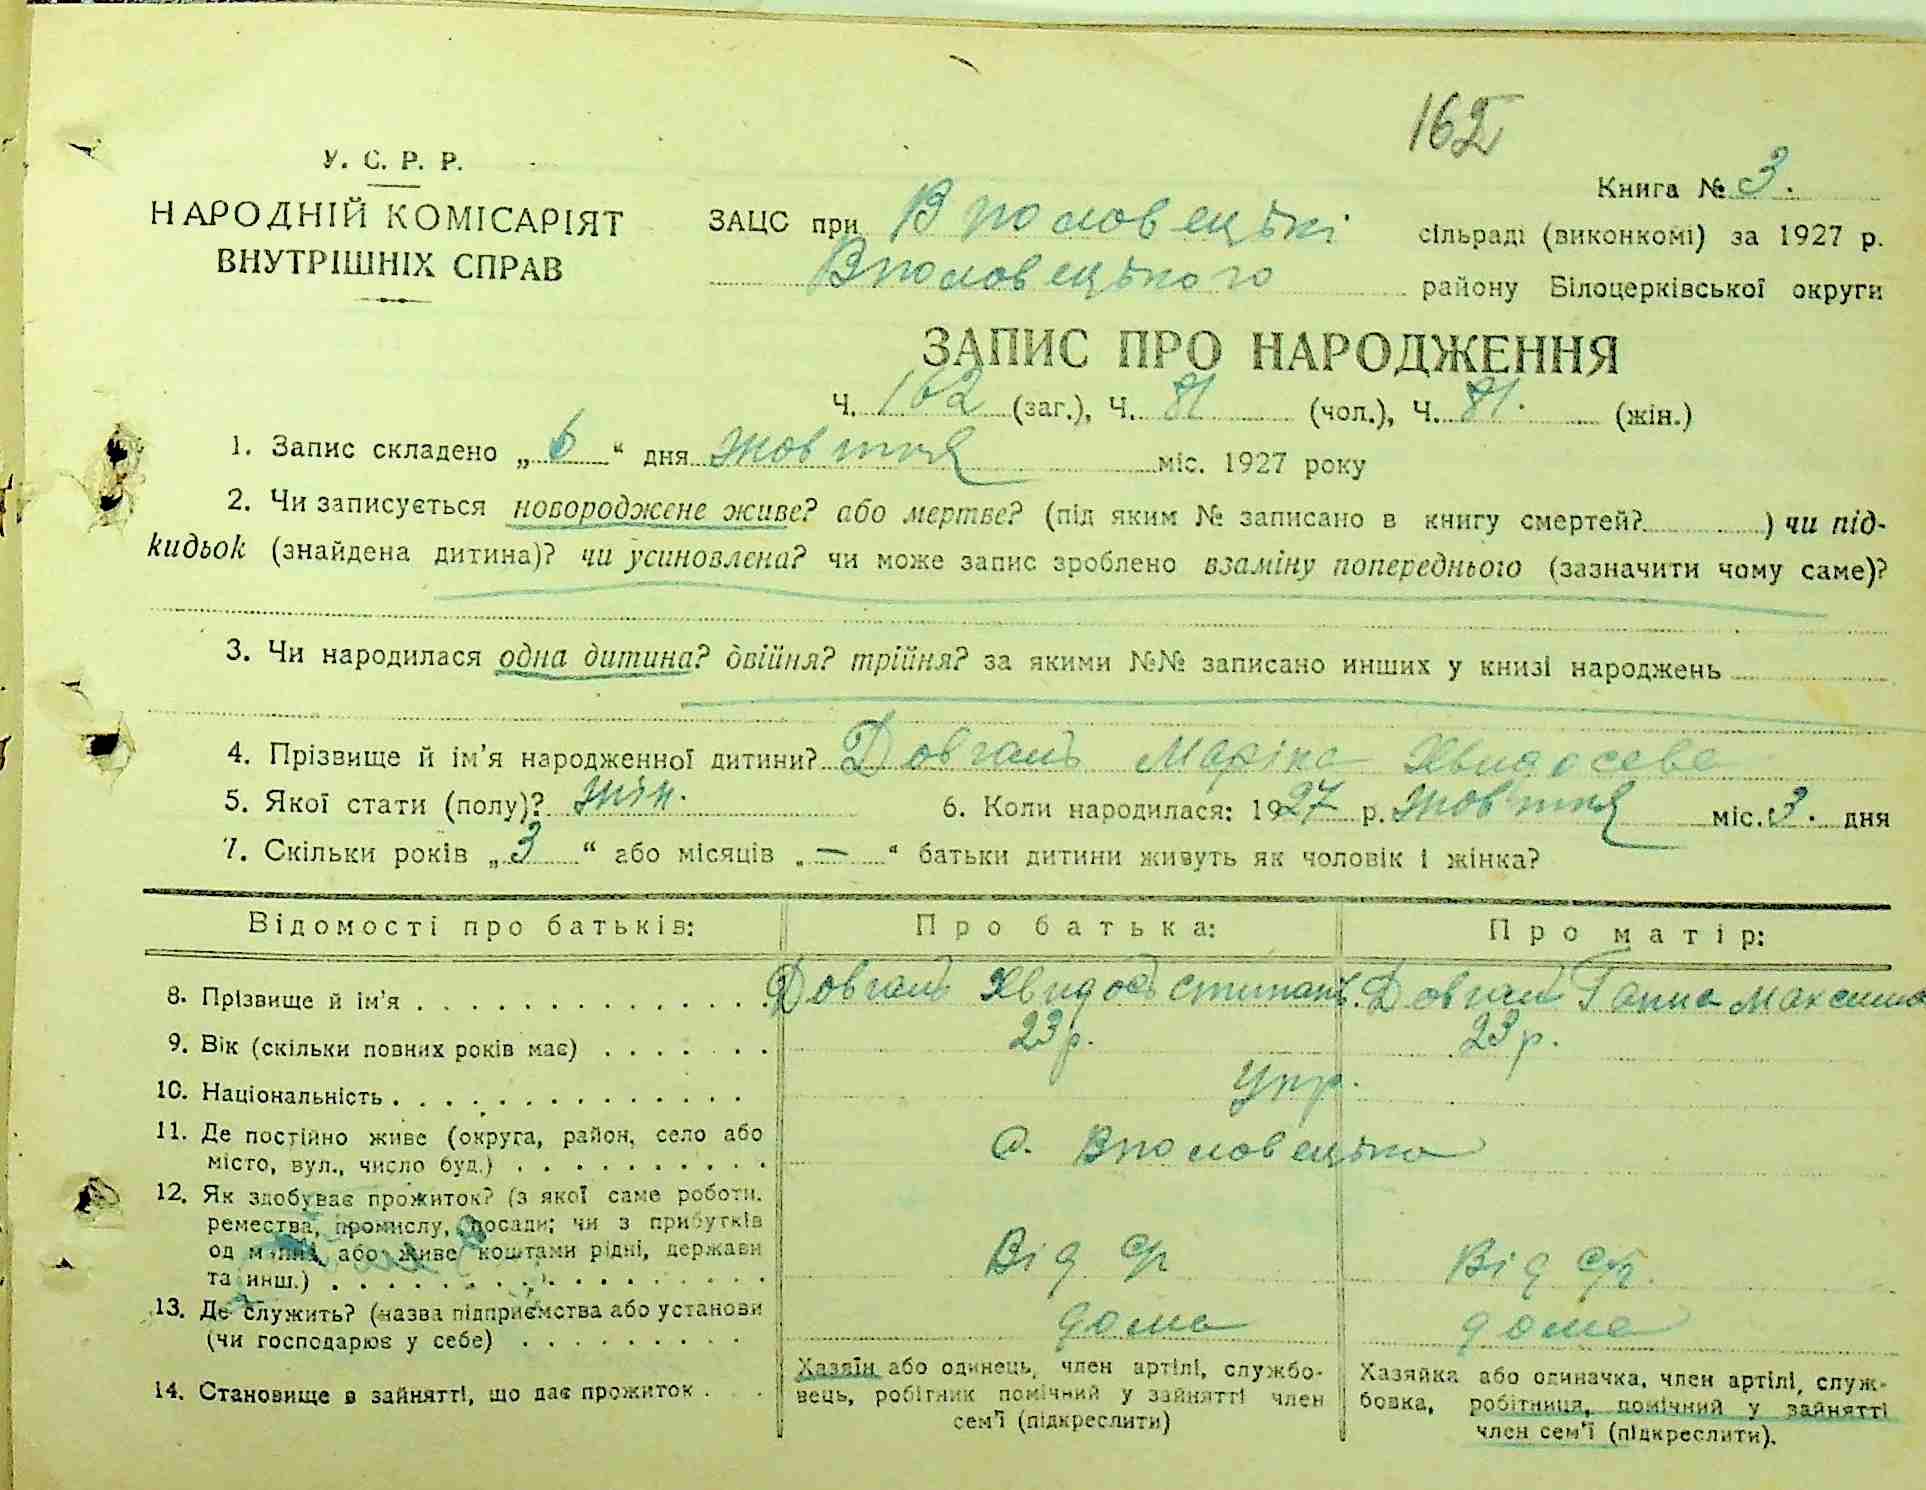 162
У. С. Р. Р.
НАРОДНІЙ КОМІСАРІЯТ
ВНУТРІШНІХ СПРАВ
Книга № 3.
ЗАЦС при Вполовецькі сільраді (виконкомі) за 1927 р.
Вполовецького району Білоцерківської округи
ЗАПИС ПРО НАРОДЖЕННЯ
Ч. 162 (заг.), Ч. 81 (чол.), Ч. 81. (жін.)
1. Запис складено „ 6 “ дня жовтня міс. 1927 року
2. Чи записується новороджене живе? або мертве? (під яким № записано в книгу смертей? ) чи під-
кидьок (знайдена дитина)? чи усиновлена? чи може запис зроблено взаміну попереднього (зазначити чому саме)?
3. Чи народилася одна дитина? двійня? трійня? за якими №№ записано инших у книзі народжень
4. Прізвище й ім'я народженної дитини? Довгань Маріка Хвидосева
5. Якої стати (полу)? жін. 6. Коли народилася: 1927 р. жовтня міс. 3. дня
7. Скільки років „ 3 “ або місяців „ — “ батьки дитини живуть як чоловік і жінка?
Відомості про батьків: Про батька: Про матір:
8. Прізвище й ім'я . . . . . . . . . . . . . . Довгань Хвидось Стипань. Довгань Ганна Максима
9. Вік (скільки повних років має) . . . . . . . 23 р. 23 р.
10. Національність . . . . . . . . . . . . . . . Укр.
11. Де постійно живе (округа, район, село або
місто, вул., число буд.) . . . . . . . . . . . с. Вполовецька
12. Як здобуває прожиток? (з якої саме роботи,
ремества, промислу, посади; чи з прибутків
од майна, або живе коштами рідні, держави
та инш.) . . . . . . . . . . . . . . . . . Від ср Від ср.
13. Де служить? (назва підприємства або установи
(чи господарює у себе) . . . . . . . . . дома дома
14. Становище в зайнятті, що дає прожиток . . .
Хазяїн або одинець, член артілі, службо-
вець, робітник помічний у зайнятті член
сем'ї (підкреслити)
Хазяйка або одиначка, член артілі, служ-
бовка, робітниця, помічний у зайнятті
член сем'ї (підкреслити).